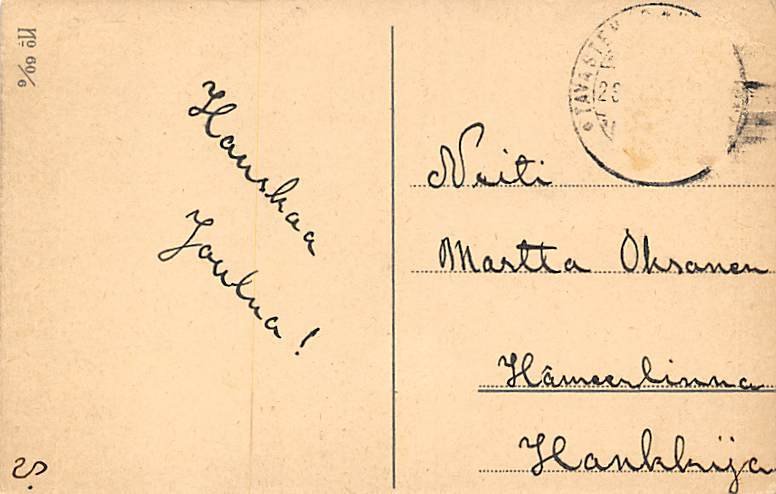 No 60/9
Hauskaa
Joulua!
S.
TAVASTEH
Neiti
Martta Oksanen
Hämeenlinna
Hankkija